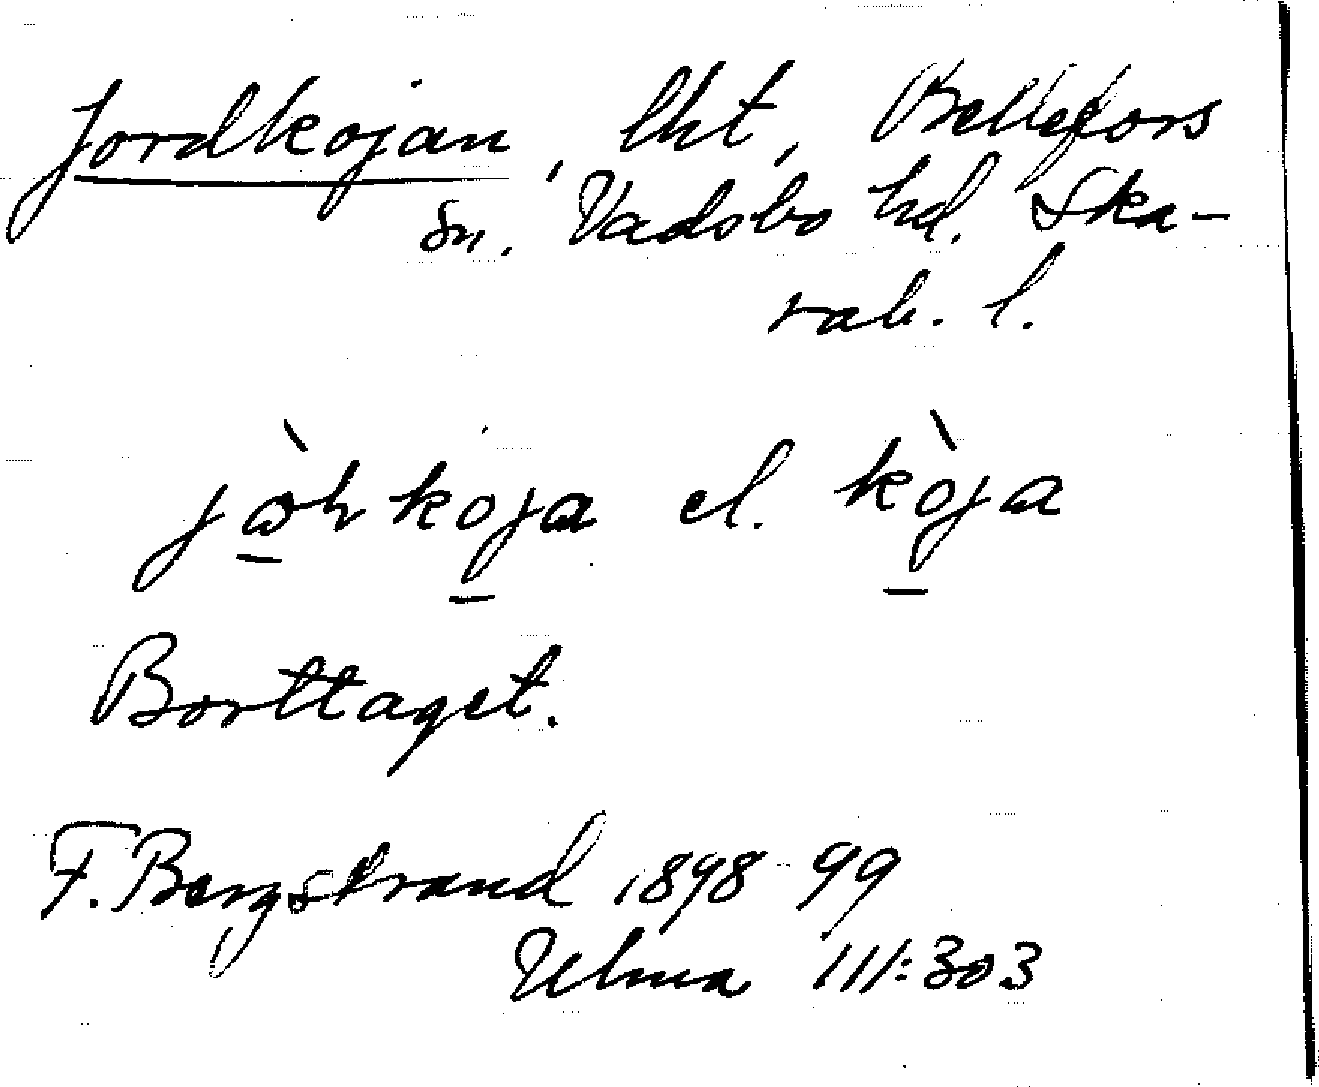 Jordkojan, lht, Bellefors
sn. Vadsbo hd. Ska-
rab. l.
koja el. kòja
Borttaget.
F. Bergstrand 1898-99
Ulma 111:303